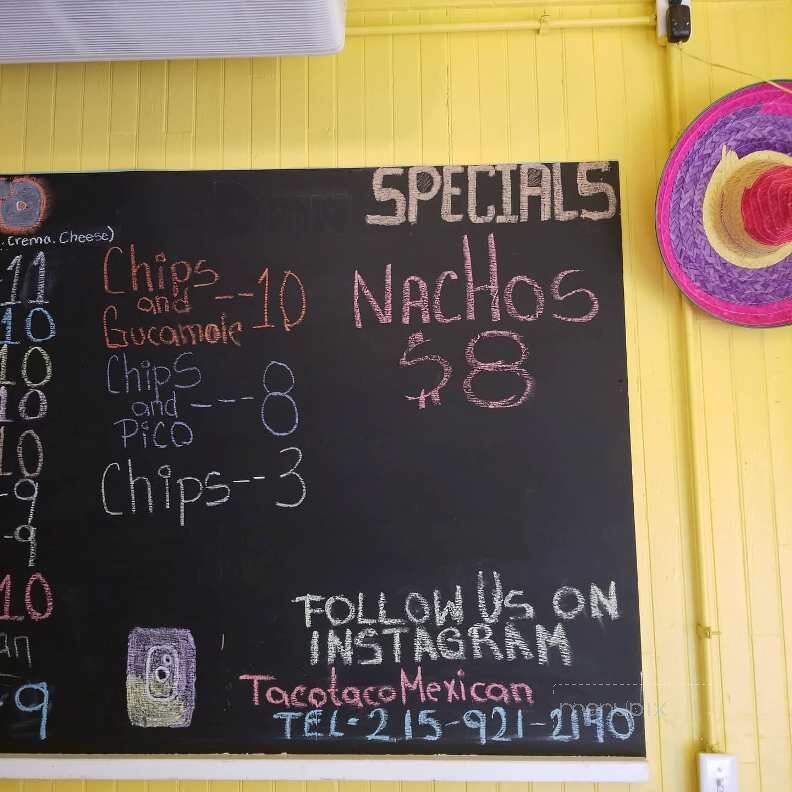 SPECIALS
. Crema. Cheese)
11
10
10
10
10
-9
-9
10
an
-9
Chips
and --10
Gucamole
Chips
and ---8
PICO
Chips--3
NacHos
$8
FOLLOW Us ON
INSTAGRAM
TacotacoMexican
TEL-215-921-2140
menupix